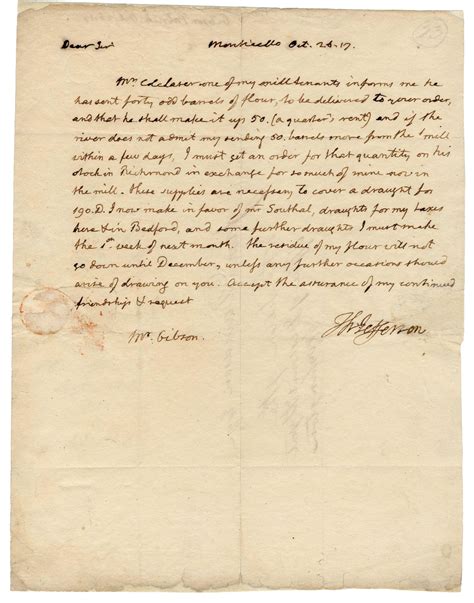 23
Dear Sir Monticello Oct. 25. 17.
Mr Colclaser one of my mill tenants informs me he
has sent forty odd barrels of flour, to be delivered to your order,
and that he shall make it up 50. (a quarter's rent) and if the
river does not admit my sending 50. barrels more from the mill
within a few days, I must get an order for that quantity on his
stock in Richmond in exchange for so much of mine now in
the mill. these supplies are necessary to cover a draught for
190.D. I now make in favor of mr Southal, draughts for my taxes
here & in Bedford, and some further draughts I must make
the 1st week of next month. the residue of my flour will not
go down until December, unless any further occasions should
arise of drawing on you. Accept the assurance of my continued
friendship & respect
Th: Jefferson
Mr Gibson.